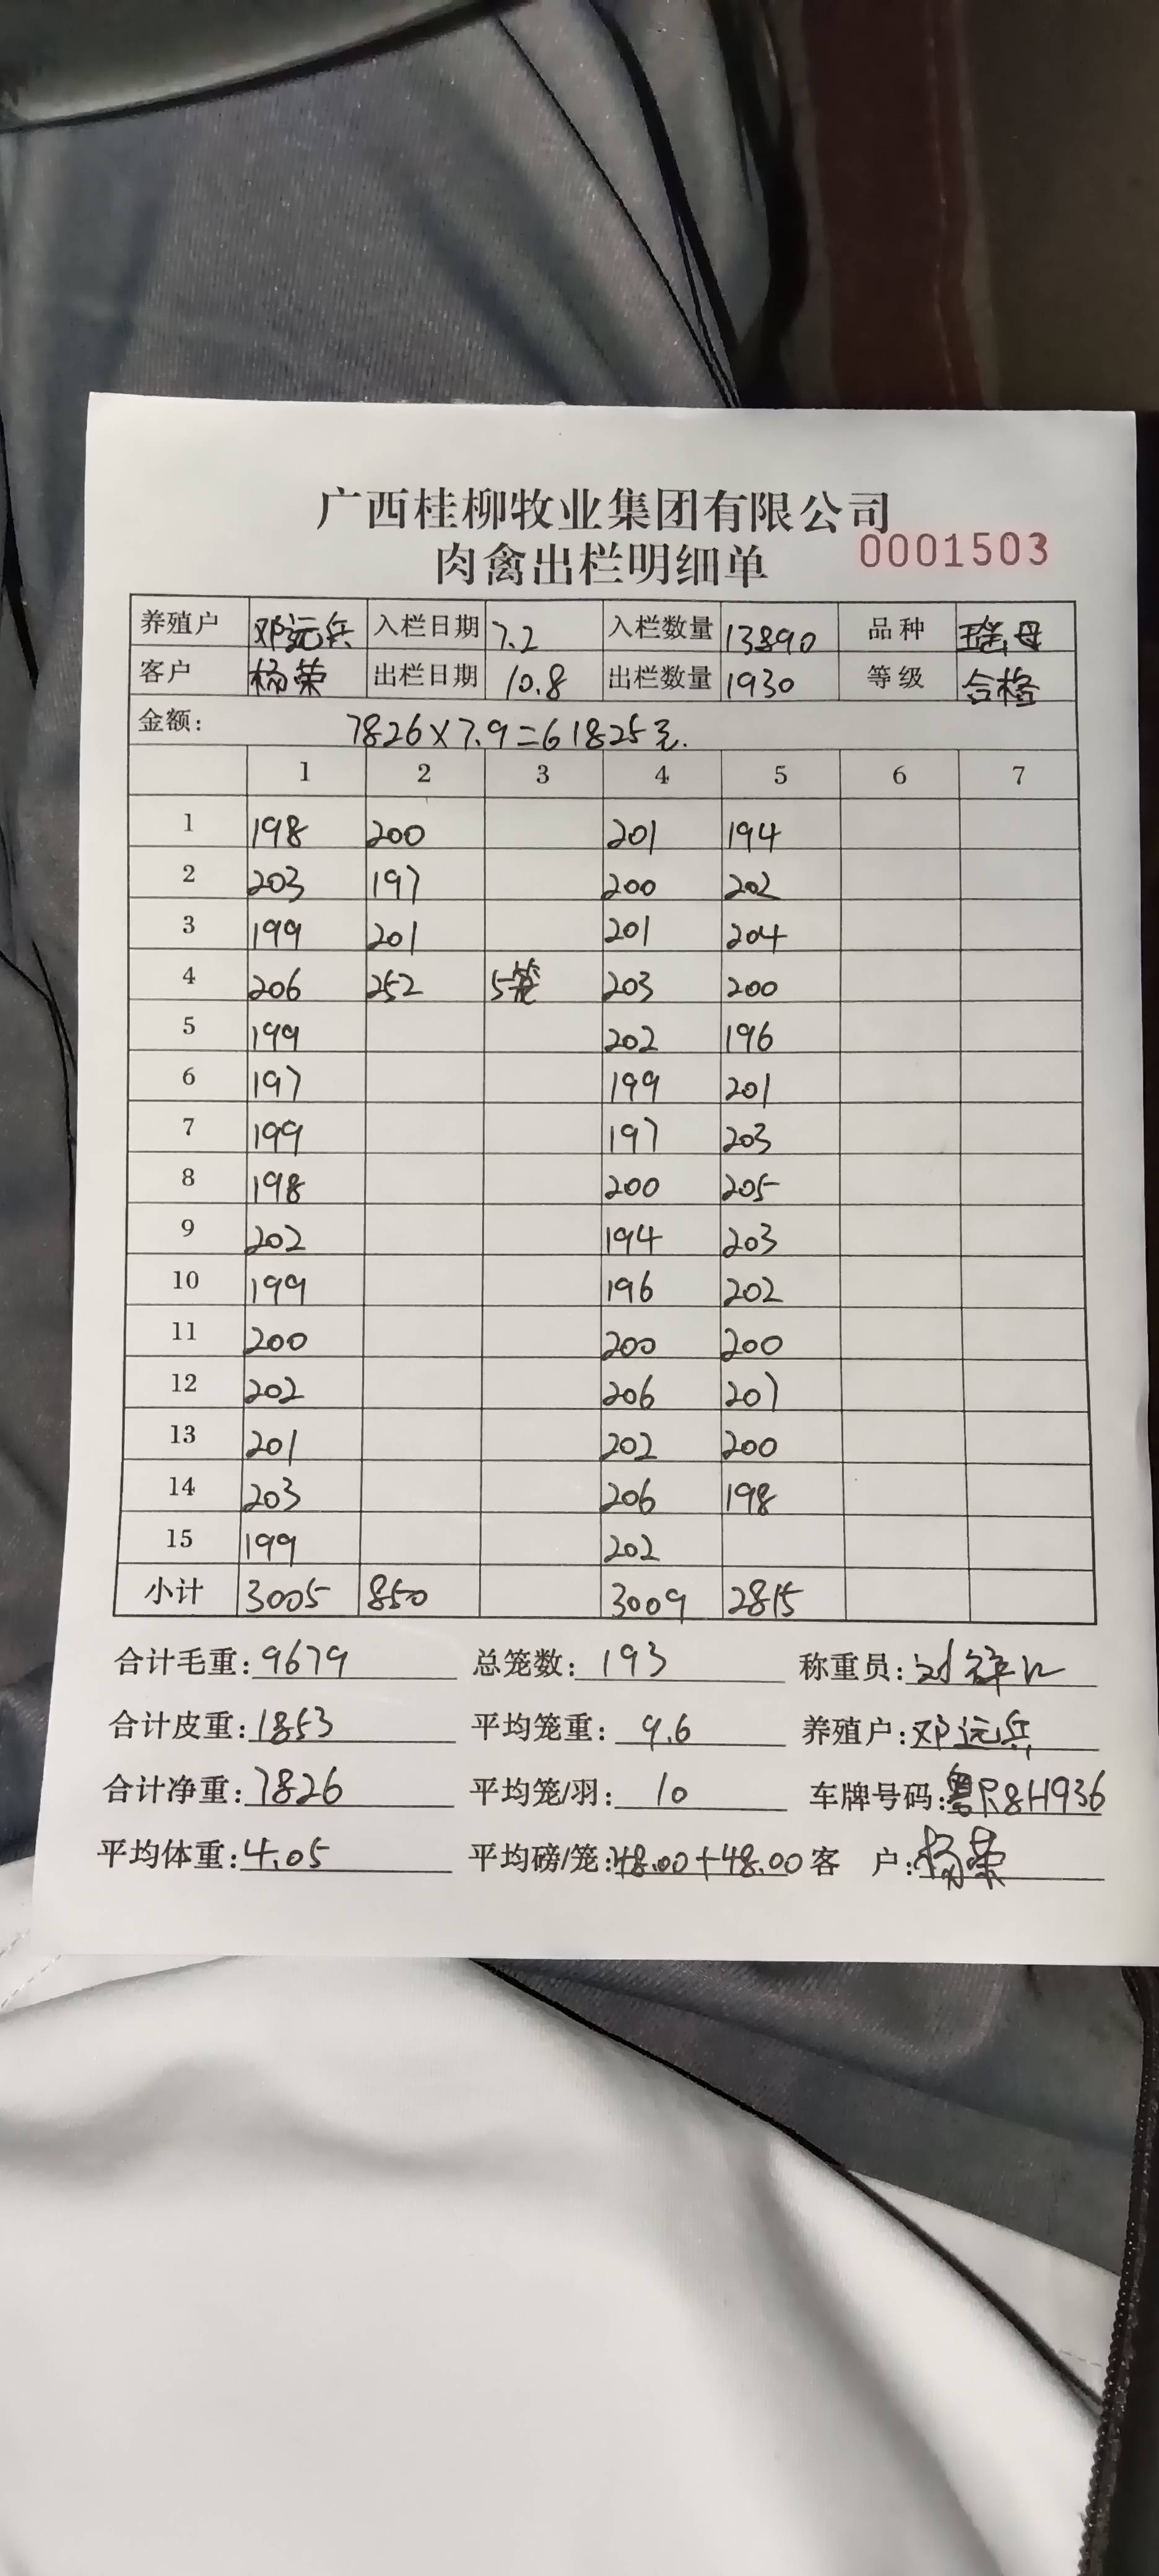 广西桂柳牧业集团有限公司
肉禽出栏明细单 0001503
养殖户 邓远兵 入栏日期 7.2 入栏数量 13890 品种 瑶母
客户 杨荣 出栏日期 10.8 出栏数量 1930 等级 合格
金额: 7826×7.9=61825元.
1 2 3 4 5 6 7
1 198 200 201 194
2 203 197 200 202
3 199 201 201 204
4 206 252 5笼 203 200
5 199 202 196
6 197 199 201
7 199 197 203
8 198 200 205
9 202 194 203
10 199 196 202
11 200 200 200
12 202 206 207
13 201 202 200
14 203 206 198
15 199 202
小计 3005 850 3009 2815
合计毛重: 9679 总笼数: 193 称重员: 刘
合计皮重: 1853 平均笼重: 9.6 养殖户: 邓远兵
合计净重: 7826 平均笼/羽: 10 车牌号码: 粤R8H936
平均体重: 4.05 平均磅/笼: 48.00+48.00 客 户: 杨荣